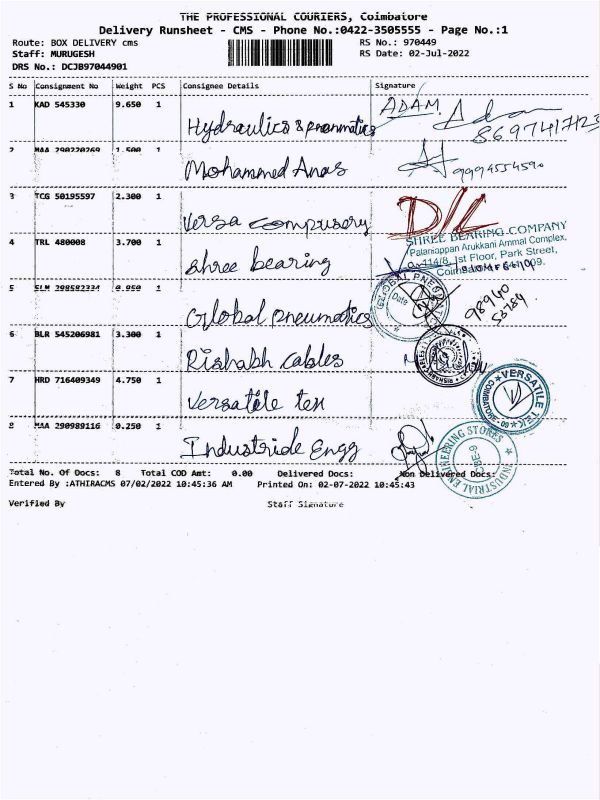 THE PROFESSIONAL COURIERS, Coimbatore
Delivery Runsheet - CMS - Phone No.:0422-3505555 - Page No.:1
Route: BOX DELIVERY cms RS No.: 970449
Staff: MURUGESH RS Date: 02-Jul-2022
DRS No.: DCJB97044901
S No Consignment No Weight PCS Consignee Details Signature
1 KAD 545330 9.650 1 ADAM.
Hydraulics & pneumatics 8697417123
2 MAA 290220269 1.500 1
Mohammed Anas 9994554590
3 TCG 50195597 2.300 1 D/L
Versa compusery
SHREE BEARING COMPANY
4 TRL 480008 3.700 1 Palaniappan Arukkani Ammal Complex,
114/8, Ist Floor, Park Street,
shree bearing
5 SLM 298582334 0.950 1 GLOBAL PNEUMATICS
Date
Global pneumatics 98940
58784
6 BLR 545206981 3.300 1
Rishabh cables
7 HRD 716409349 4.750 1 VERSATILE TEK
COIMBATORE
Versatile tex
8 MAA 290989116 0.250 1
Industride Engg INDUSTRIAL ENGINEERING STORES
Total No. Of Docs: 8 Total COD Amt: 0.00 Delivered Docs: Non Delivered Docs:
Entered By :ATHIRACMS 07/02/2022 10:45:36 AM Printed On: 02-07-2022 10:45:43
Verified By Staff Signature